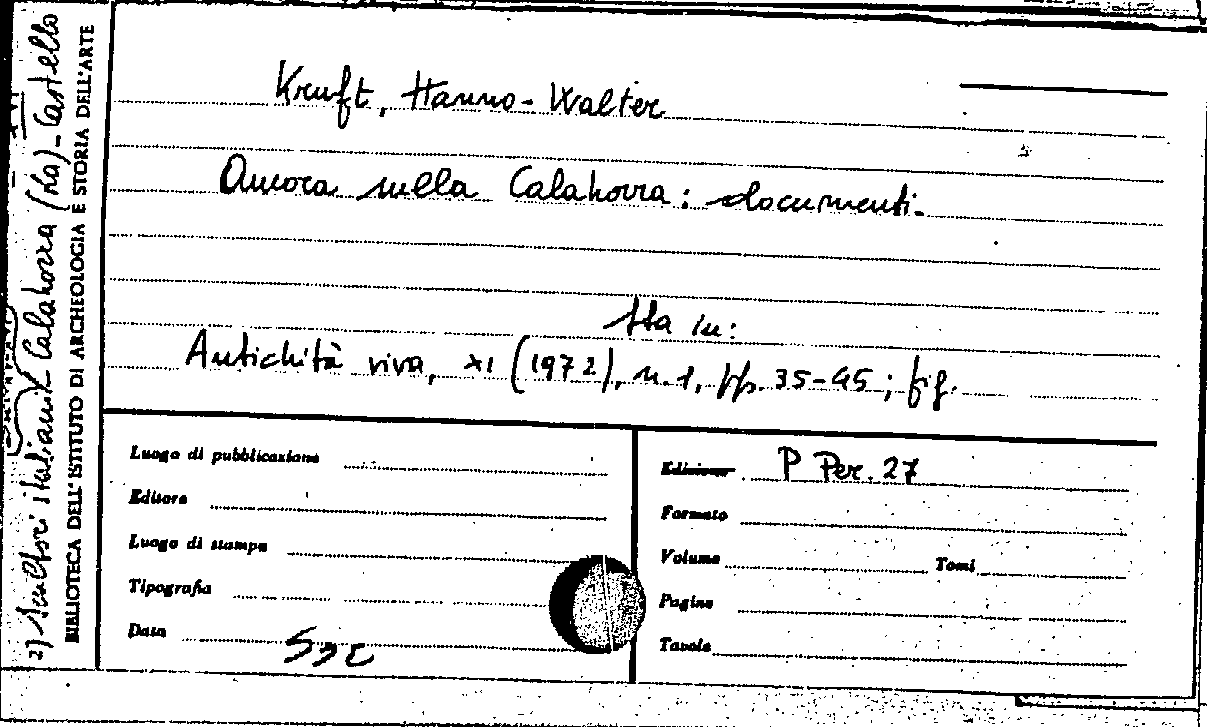 Kruft, Hanno-Walter
Ancora sulla Calahorra: documenti.
Sta in:
Antichità viva, XI (1972), n.1, pp. 35-45; fig.
Luogo di pubblicazione
Editore
Luogo di stampa
Tipografia
Data
Edizione P Per. 27
Formato
Volume Tomi
Pagine
Tavole
BIBLIOTECA DELL'ISTITUTO DI ARCHEOLOGIA E STORIA DELL'ARTE
2) Scultori italiani Calahorra (La) - Castello